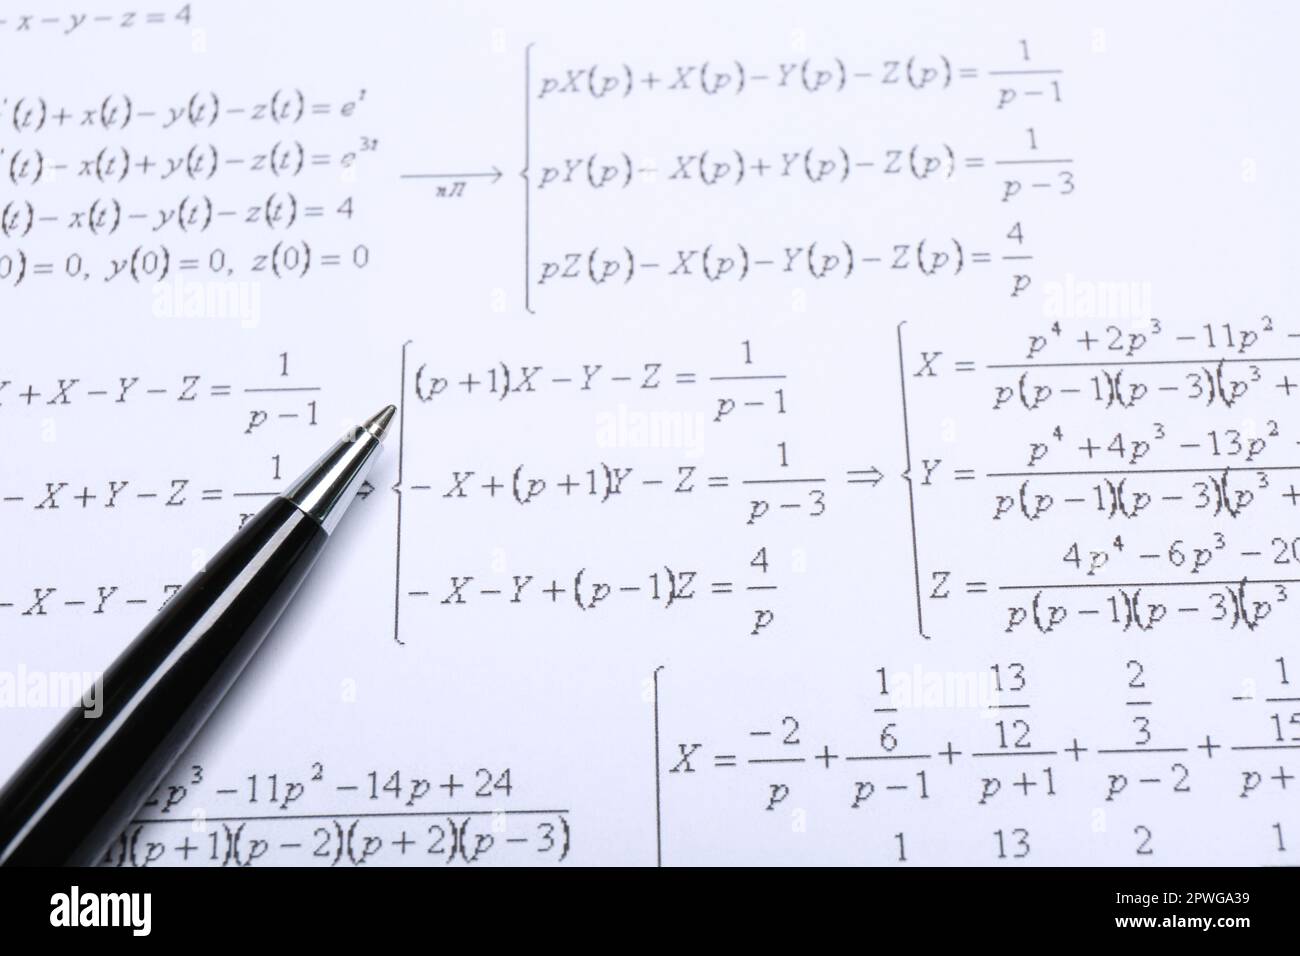 - x - y - z = 4
'(t) + x(t) - y(t) - z(t) = e^t
'(t) - x(t) + y(t) - z(t) = e^{3t}
(t) - x(t) - y(t) - z(t) = 4
0) = 0, y(0) = 0, z(0) = 0
пЛ
pX(p) + X(p) - Y(p) - Z(p) = 1/(p - 1)
pY(p) - X(p) + Y(p) - Z(p) = 1/(p - 3)
pZ(p) - X(p) - Y(p) - Z(p) = 4/p
+ X - Y - Z = 1/(p - 1)
- X + Y - Z = 1
- X - Y - Z
⇒
(p + 1)X - Y - Z = 1/(p - 1)
- X + (p + 1)Y - Z = 1/(p - 3)
- X - Y + (p - 1)Z = 4/p
⇒
X = (p^4 + 2p^3 - 11p^2 -)/(p(p - 1)(p - 3)(p^3 +
Y = (p^4 + 4p^3 - 13p^2 -)/(p(p - 1)(p - 3)(p^3 +
Z = (4p^4 - 6p^3 - 20)/(p(p - 1)(p - 3)(p^3
2p^3 - 11p^2 - 14p + 24
)(p + 1)(p - 2)(p + 2)(p - 3)
X = -2/p + (1/6)/(p - 1) + (13/12)/(p + 1) + (2/3)/(p - 2) + (- 1/15)/(p +
1 13 2 1
alamy
Image ID: 2PWGA39
www.alamy.com